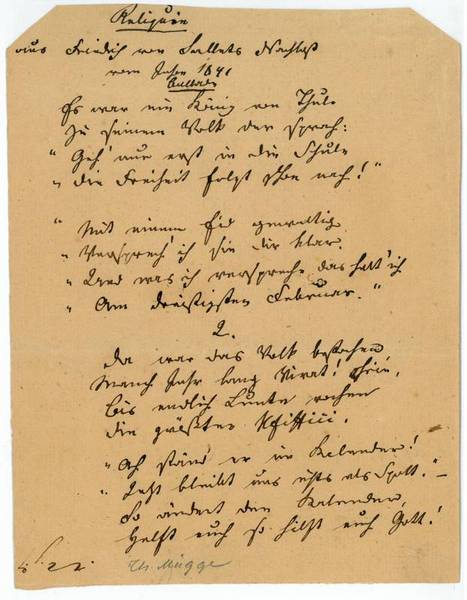 Reliquie
aus Friedrich von Sallets Nachlaß
vom Jahre 1841
Ballade
Es war ein König von Thule
Zu seinem Volk der sprach:
"Geh' nur erst in die Schule
"die Freiheit folgt schon nach!"
"Mit einem Eid gewaltig
"Versprech' ich sie dir klar,
"Und was ich verspreche das halt' ich
"Am dreißigsten Februar."
2.
Da war das Volk
Manch Jahr lang Vivat! schrie,
Bis endlich Lunte rochen
die größten
"Ach ständ' er im Kalender!
"Jetzt bleibt uns nichts als Spott." –
So ändert den Kalender,
Helft euch so hilft euch Gott!
Th. Mügge